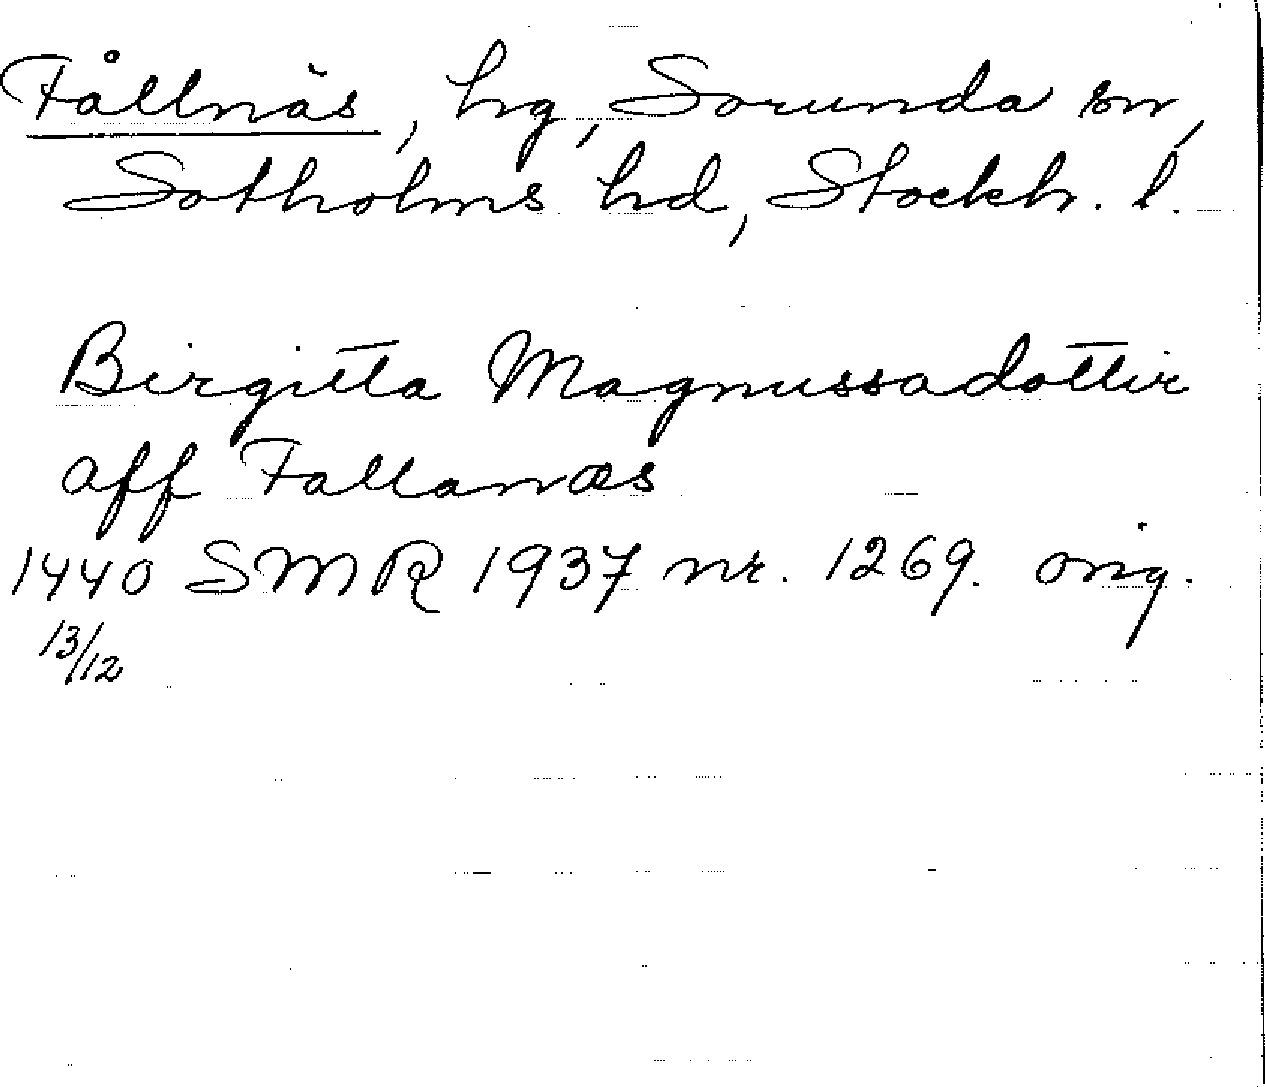 Fållnäs, hg, Sorunda sn,
Sotholms hd, Stockh. l.
Birgitta Magnussadottir
aff Fallanæs
1440 SMR 1937 nr. 1269. orig.
13/12